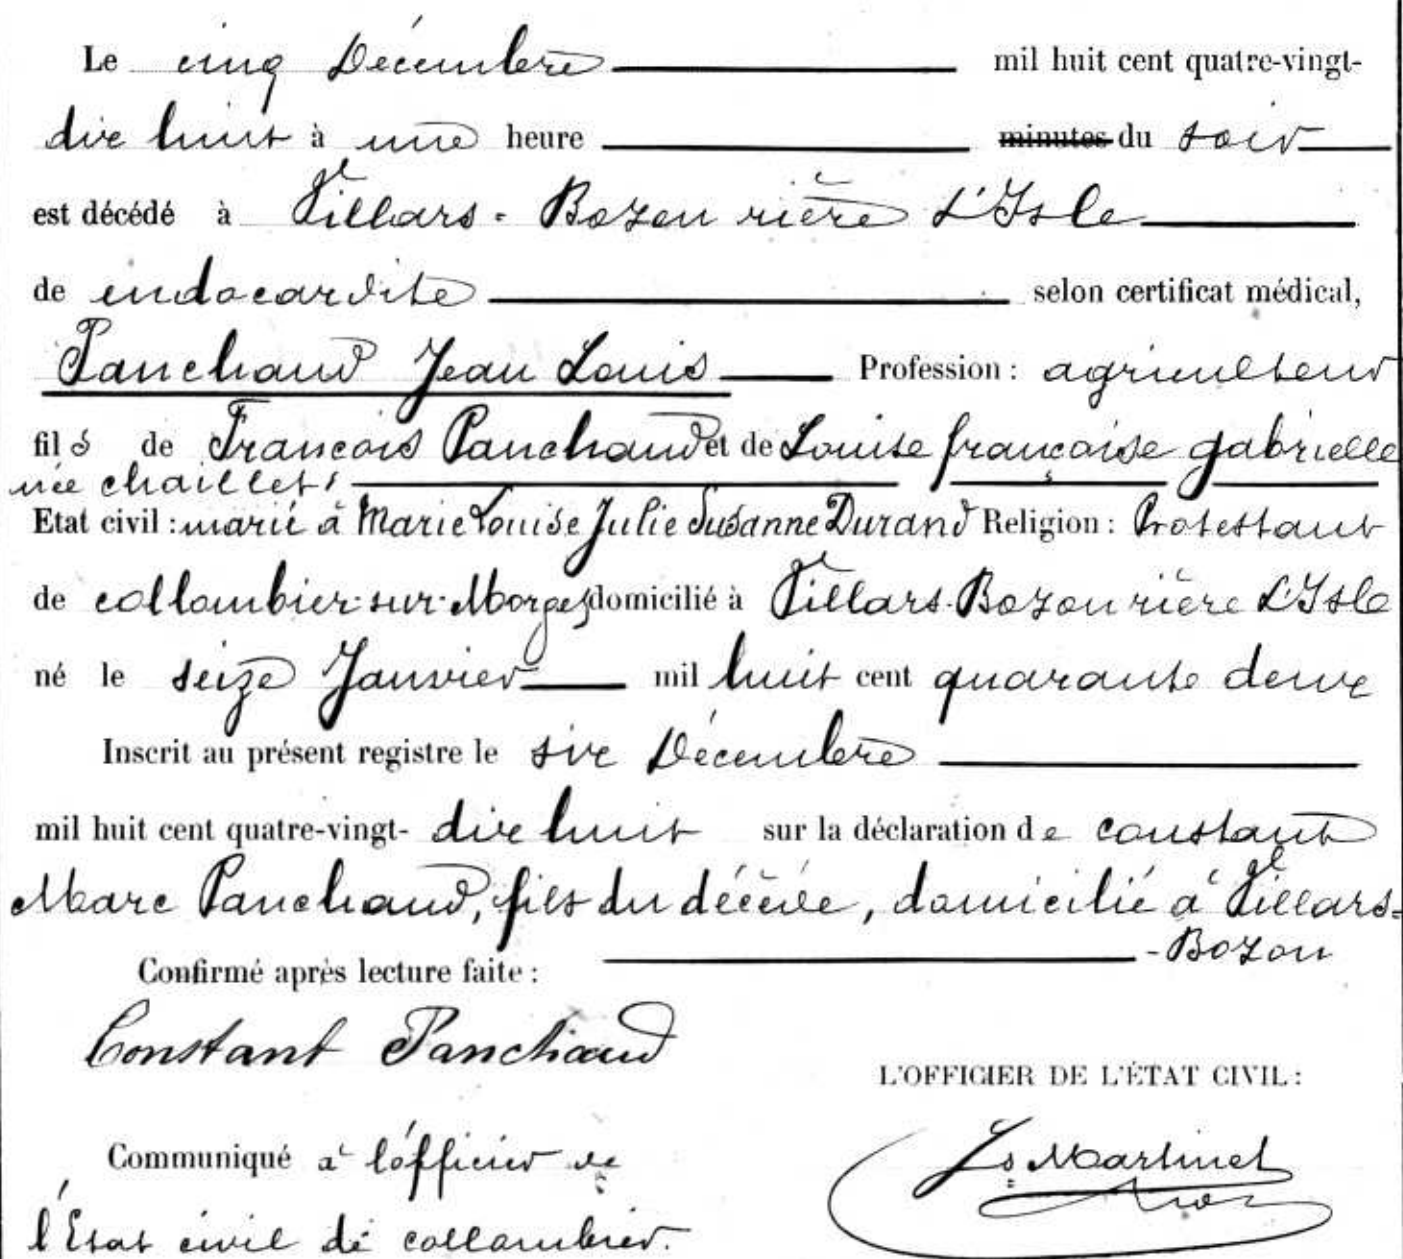 Le cinq Décembre mil huit cent quatre-vingt-
dix huit à une heure minutes du soir
est décédé à Villars-Bozon rière L'Isle
de endocardite selon certificat médical,
Panchaud Jean Louis Profession : agriculteur
fils de François Panchaud et de Louise françoise gabrielle
née chaillet
Etat civil : marié à Marie Louise Julie Susanne Durand Religion : Protestant
de collombier-sur-Morges domicilié à Villars-Bozon rière L'Isle
né le seize Janvier mil huit cent quarante deux
Inscrit au présent registre le six Décembre
mil huit cent quatre-vingt- dix huit sur la déclaration de constant
Marc Panchaud, fils du décédé, domicilié à Villars-
-Bozon
Confirmé après lecture faite :
Constant Panchaud
L'OFFICIER DE L'ÉTAT CIVIL :
Communiqué à l'officier de
Ls Martinet
l'Etat civil de collombier.